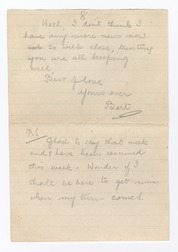 8
Well, I don't think I
have any more news now
so to will close, trusting
you are all keeping
well.
Best of love
Yours ever
Bert
P.S.
Glad to say that week
end have been resumed
this week. Wonder if I
shall be here to get mine
when my turn comes.